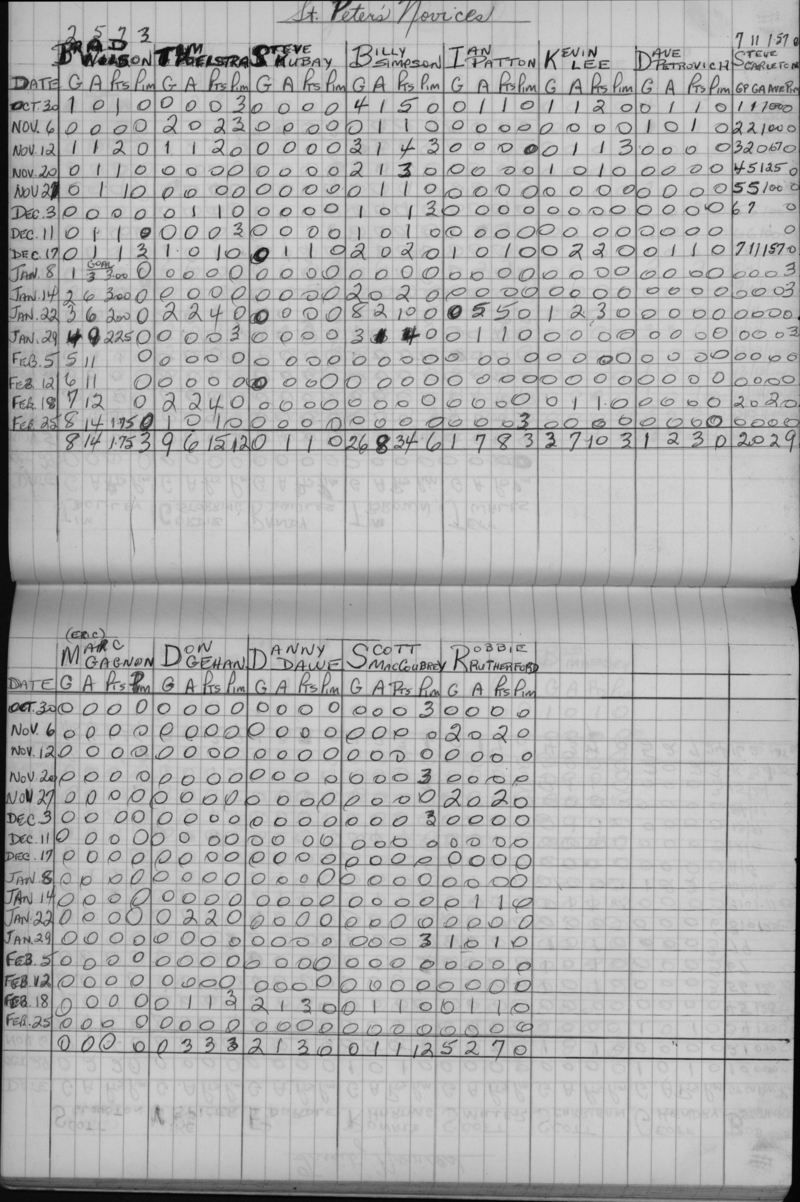 St. Peter's Novices
2 5 7 3 7 11 1570
BRAD WILSON TIM HOELSTRA STEVE HUBAY BILLY SIMPSON IAN PATTON KEVIN LEE DAVE PETROVICH STEVE SCARLETON
DATE G A Pts Pim G A Pts Pim G A Pts Pim G A Pts Pim G A Pts Pim G A Pts Pim G A Pts Pim GP GA Ave Pim
OCT. 30 1 0 1 0 0 0 0 3 0 0 0 0 4 1 5 0 0 1 1 0 1 1 2 0 0 1 1 0 1 1 1000
NOV. 6 0 0 0 0 2 0 2 3 0 0 0 0 0 1 1 0 0 0 0 0 0 0 0 0 1 0 1 0 2 2 1000
NOV. 12 1 1 2 0 1 1 2 0 0 0 0 0 3 1 4 3 0 0 0 0 0 1 1 3 0 0 0 0 3 2 0670
NOV. 20 0 1 1 0 0 0 0 0 0 0 0 0 2 1 3 0 0 0 0 0 1 0 1 0 0 0 0 0 4 5 125 0
NOV 27 0 1 1 0 0 0 0 0 0 0 0 0 0 1 1 0 0 0 0 0 0 0 0 0 0 0 0 0 5 5 100 0
DEC. 3 0 0 0 0 0 1 1 0 0 0 0 0 1 0 1 3 0 0 0 0 0 0 0 0 0 0 0 0 6 7 0
DEC. 11 0 1 1 0 0 0 0 3 0 0 0 0 1 0 1 0 0 0 0 0 0 0 0 0 0 0 0 0 0
DEC. 17 0 1 1 3 1 0 1 0 0 1 1 0 2 0 2 0 1 0 1 0 0 2 2 0 0 1 1 0 7 11 1570
JAN. 8 1 GOAL 3 3.00 0 0 0 0 0 0 0 0 0 0 0 0 0 0 0 0 0 0 0 0 0 0 0 0 0 0 0 0 3
JAN. 14 2 6 3.00 0 0 0 0 0 0 0 0 0 2 0 2 0 0 0 0 0 0 0 0 0 0 0 0 0 0 0 0 3
JAN. 22 3 6 200 0 2 2 4 0 0 0 0 0 8 2 10 0 0 5 5 0 1 2 3 0 0 0 0 0 0 0 0 0
JAN. 29 4 9 225 0 0 0 0 3 0 0 0 0 3 1 4 0 0 1 1 0 0 0 0 0 0 0 0 0 0 0 0 3
FEB. 5 5 11 0 0 0 0 0 0 0 0 0 0 0 0 0 0 0 0 0 0 0 0 0 0 0 0 0 0 0 0 0
FEB 12 6 11 0 0 0 0 0 0 0 0 0 0 0 0 0 0 0 0 0 0 0 0 0 0 0 0 0 0 0 0 0
FEB 18 7 12 0 2 2 4 0 0 0 0 0 0 0 0 0 0 0 0 0 0 1 1 0 0 0 0 0 2 0 2 0
FEB. 25 8 14 1.75 0 1 0 1 0 0 0 0 0 0 0 0 0 0 0 0 3 0 0 0 0 0 0 0 0 0 0 0 0
8 14 1.75 3 9 6 15 12 0 1 1 0 26 8 34 6 1 7 8 3 3 7 10 3 1 2 3 0 2 0 2 9
(ERIC)
MARC GAGNON DON GEHAN DANNY DAWE SCOTT MACCOUBREY ROBBIE RUTHERFORD
DATE G A Pts Pim G A Pts Pim G A Pts Pim G A Pts Pim G A Pts Pim
OCT. 30 0 0 0 0 0 0 0 0 0 0 0 0 0 0 0 3 0 0 0 0
NOV. 6 0 0 0 0 0 0 0 0 0 0 0 0 0 0 0 0 2 0 2 0
NOV. 12 0 0 0 0 0 0 0 0 0 0 0 0 0 0 0 0 0 0 0 0
NOV 20 0 0 0 0 0 0 0 0 0 0 0 0 0 0 0 3 0 0 0 0
NOV 27 0 0 0 0 0 0 0 0 0 0 0 0 0 0 0 0 2 0 2 0
DEC. 3 0 0 0 0 0 0 0 0 0 0 0 0 0 0 0 3 0 0 0 0
DEC. 11 0 0 0 0 0 0 0 0 0 0 0 0 0 0 0 0 0 0 0 0
DEC. 17 0 0 0 0 0 0 0 0 0 0 0 0 0 0 0 0 0 0 0 0
JAN. 8 0 0 0 0 0 0 0 0 0 0 0 0 0 0 0 0 0 0 0 0
JAN 14 0 0 0 0 0 0 0 0 0 0 0 0 0 0 0 0 0 1 1 0
JAN. 22 0 0 0 0 0 2 2 0 0 0 0 0 0 0 0 0 0 0 0 0
JAN. 29 0 0 0 0 0 0 0 0 0 0 0 0 0 0 0 3 1 0 1 0
FEB. 5 0 0 0 0 0 0 0 0 0 0 0 0 0 0 0 0 0 0 0 0
FEB. 12 0 0 0 0 0 0 0 0 0 0 0 0 0 0 0 0 0 0 0 0
FEB. 18 0 0 0 0 0 1 1 3 2 1 3 0 0 1 1 0 0 1 1 0
FEB. 25 0 0 0 0 0 0 0 0 0 0 0 0 0 0 0 0 0 0 0 0
0 0 0 0 0 3 3 3 2 1 3 0 0 1 1 12 5 2 7 0